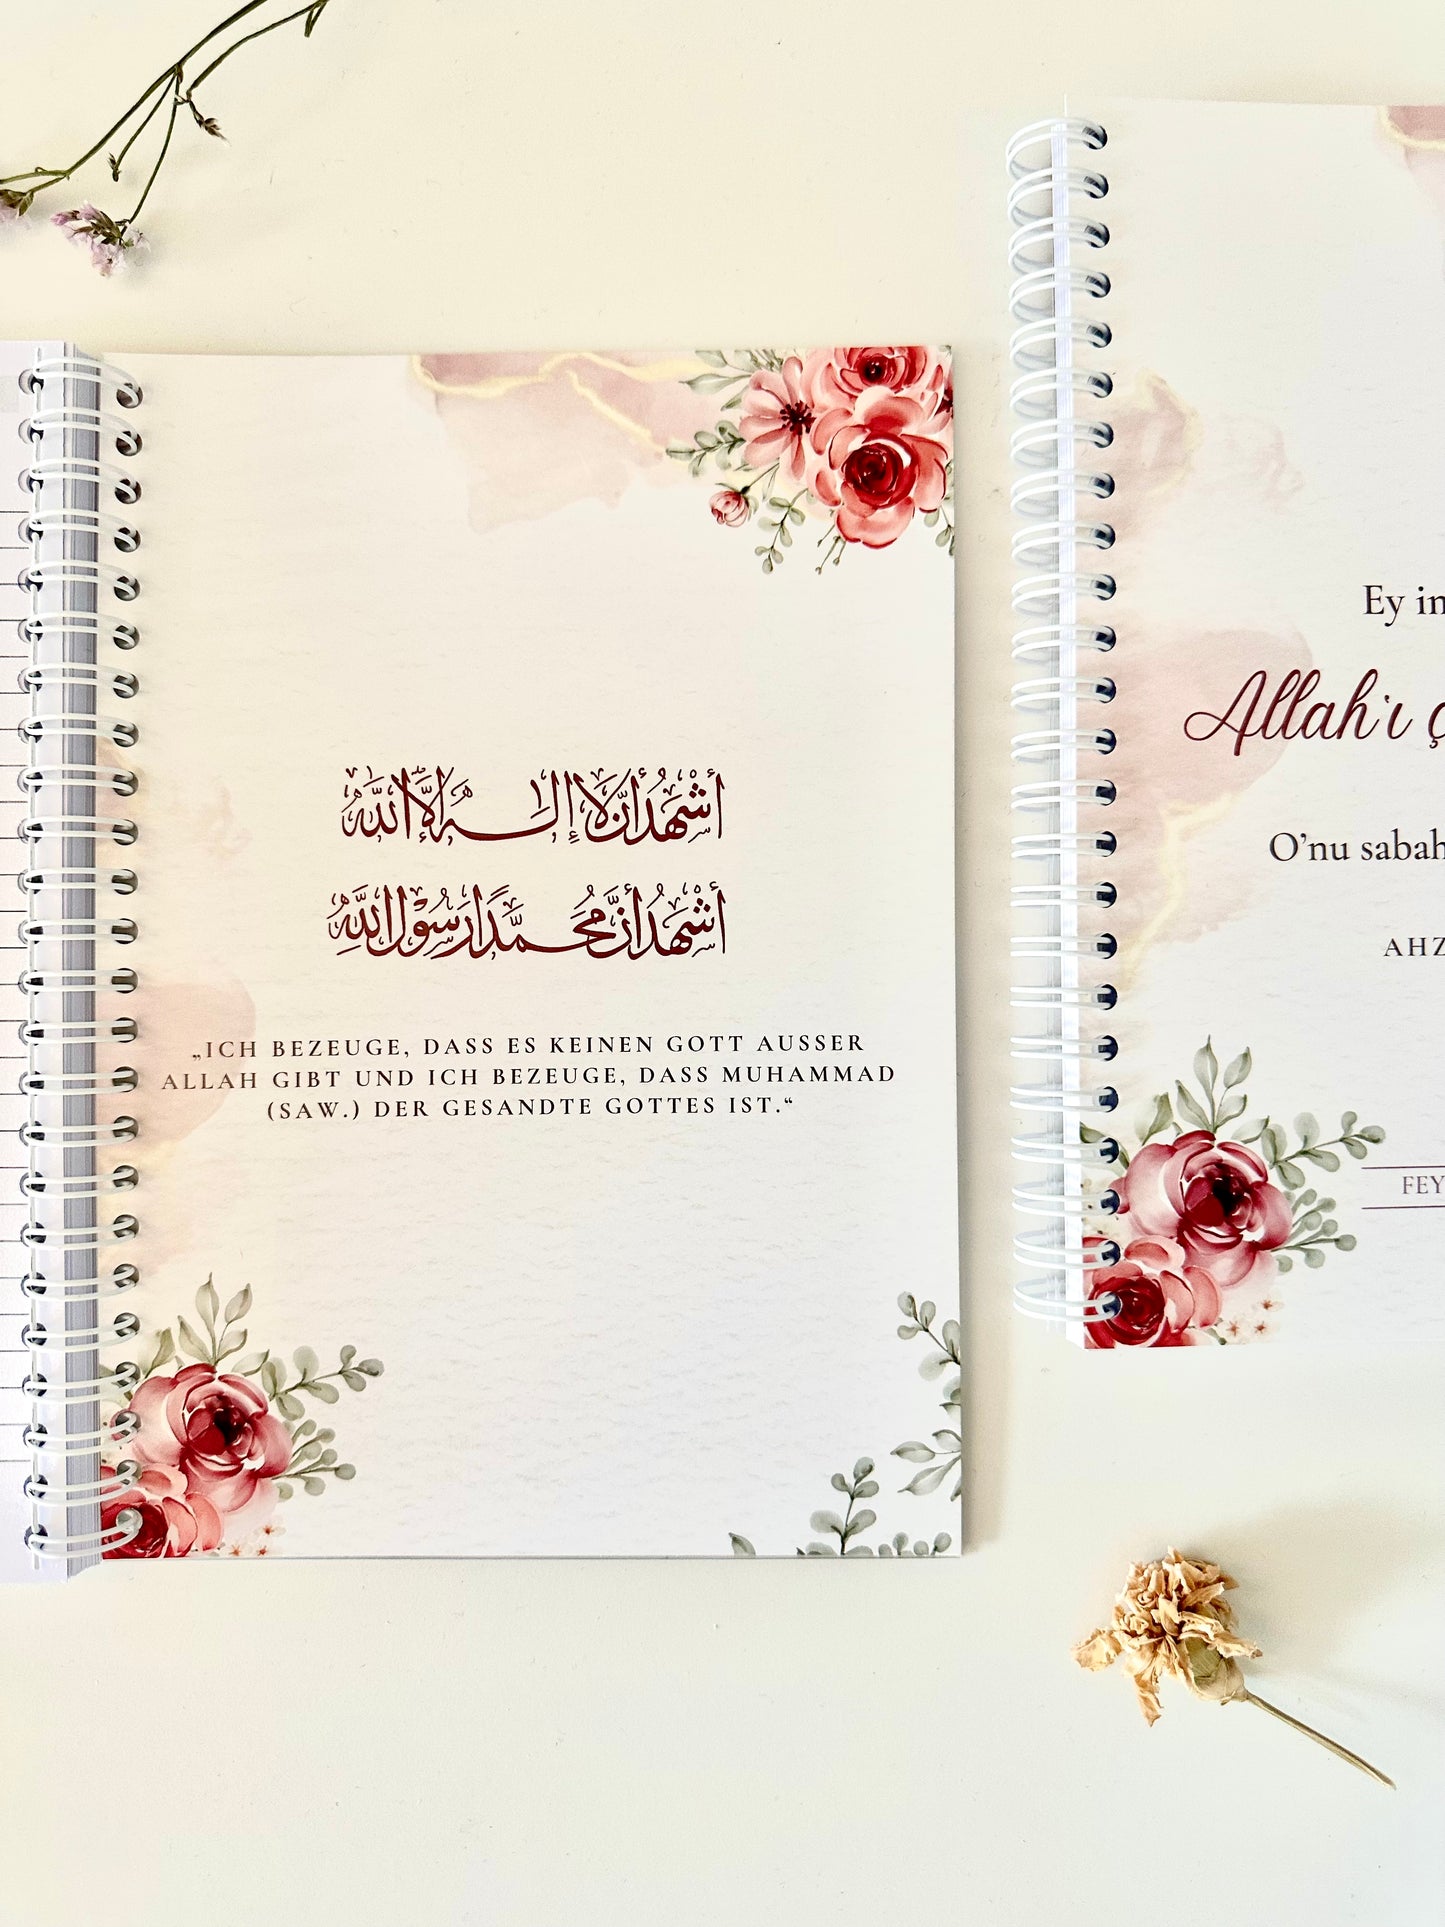 أَشْهَدُ أَنْ لَا إِلٰهَ إِلَّا اللّٰهُ
أَشْهَدُ أَنَّ مُحَمَّدًا رَسُوْلُ اللّٰهِ
„ICH BEZEUGE, DASS ES KEINEN GOTT AUSSER
ALLAH GIBT UND ICH BEZEUGE, DASS MUHAMMAD
(SAW.) DER GESANDTE GOTTES IST.“
Ey
Allah'ı
O’nu sabah